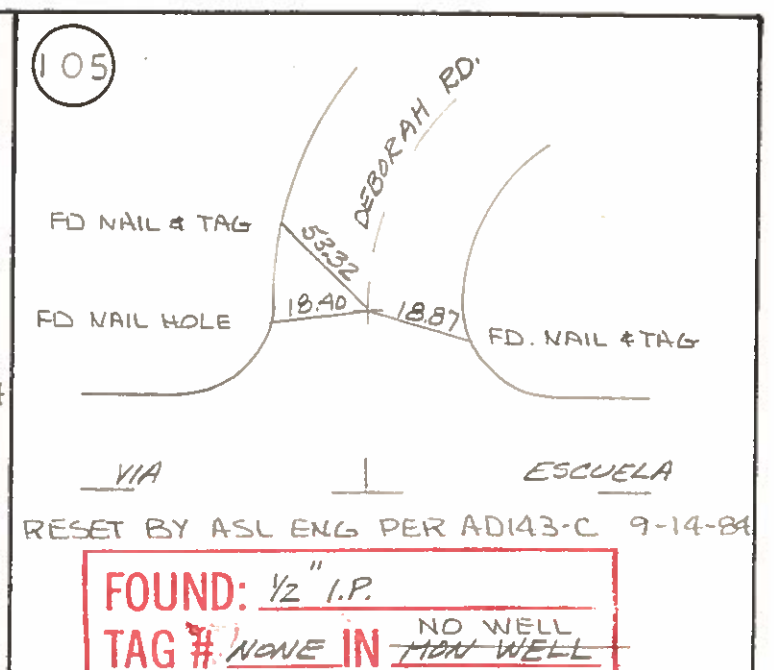 105
DEBORAH RD.
FD NAIL & TAG
53.32
FD NAIL HOLE
18.40
18.87
FD. NAIL & TAG
VIA
ESCUELA
RESET BY ASL ENG PER AD143-C 9-14-84
FOUND: 1/2" I.P.
NO WELL
TAG # NONE IN MON WELL